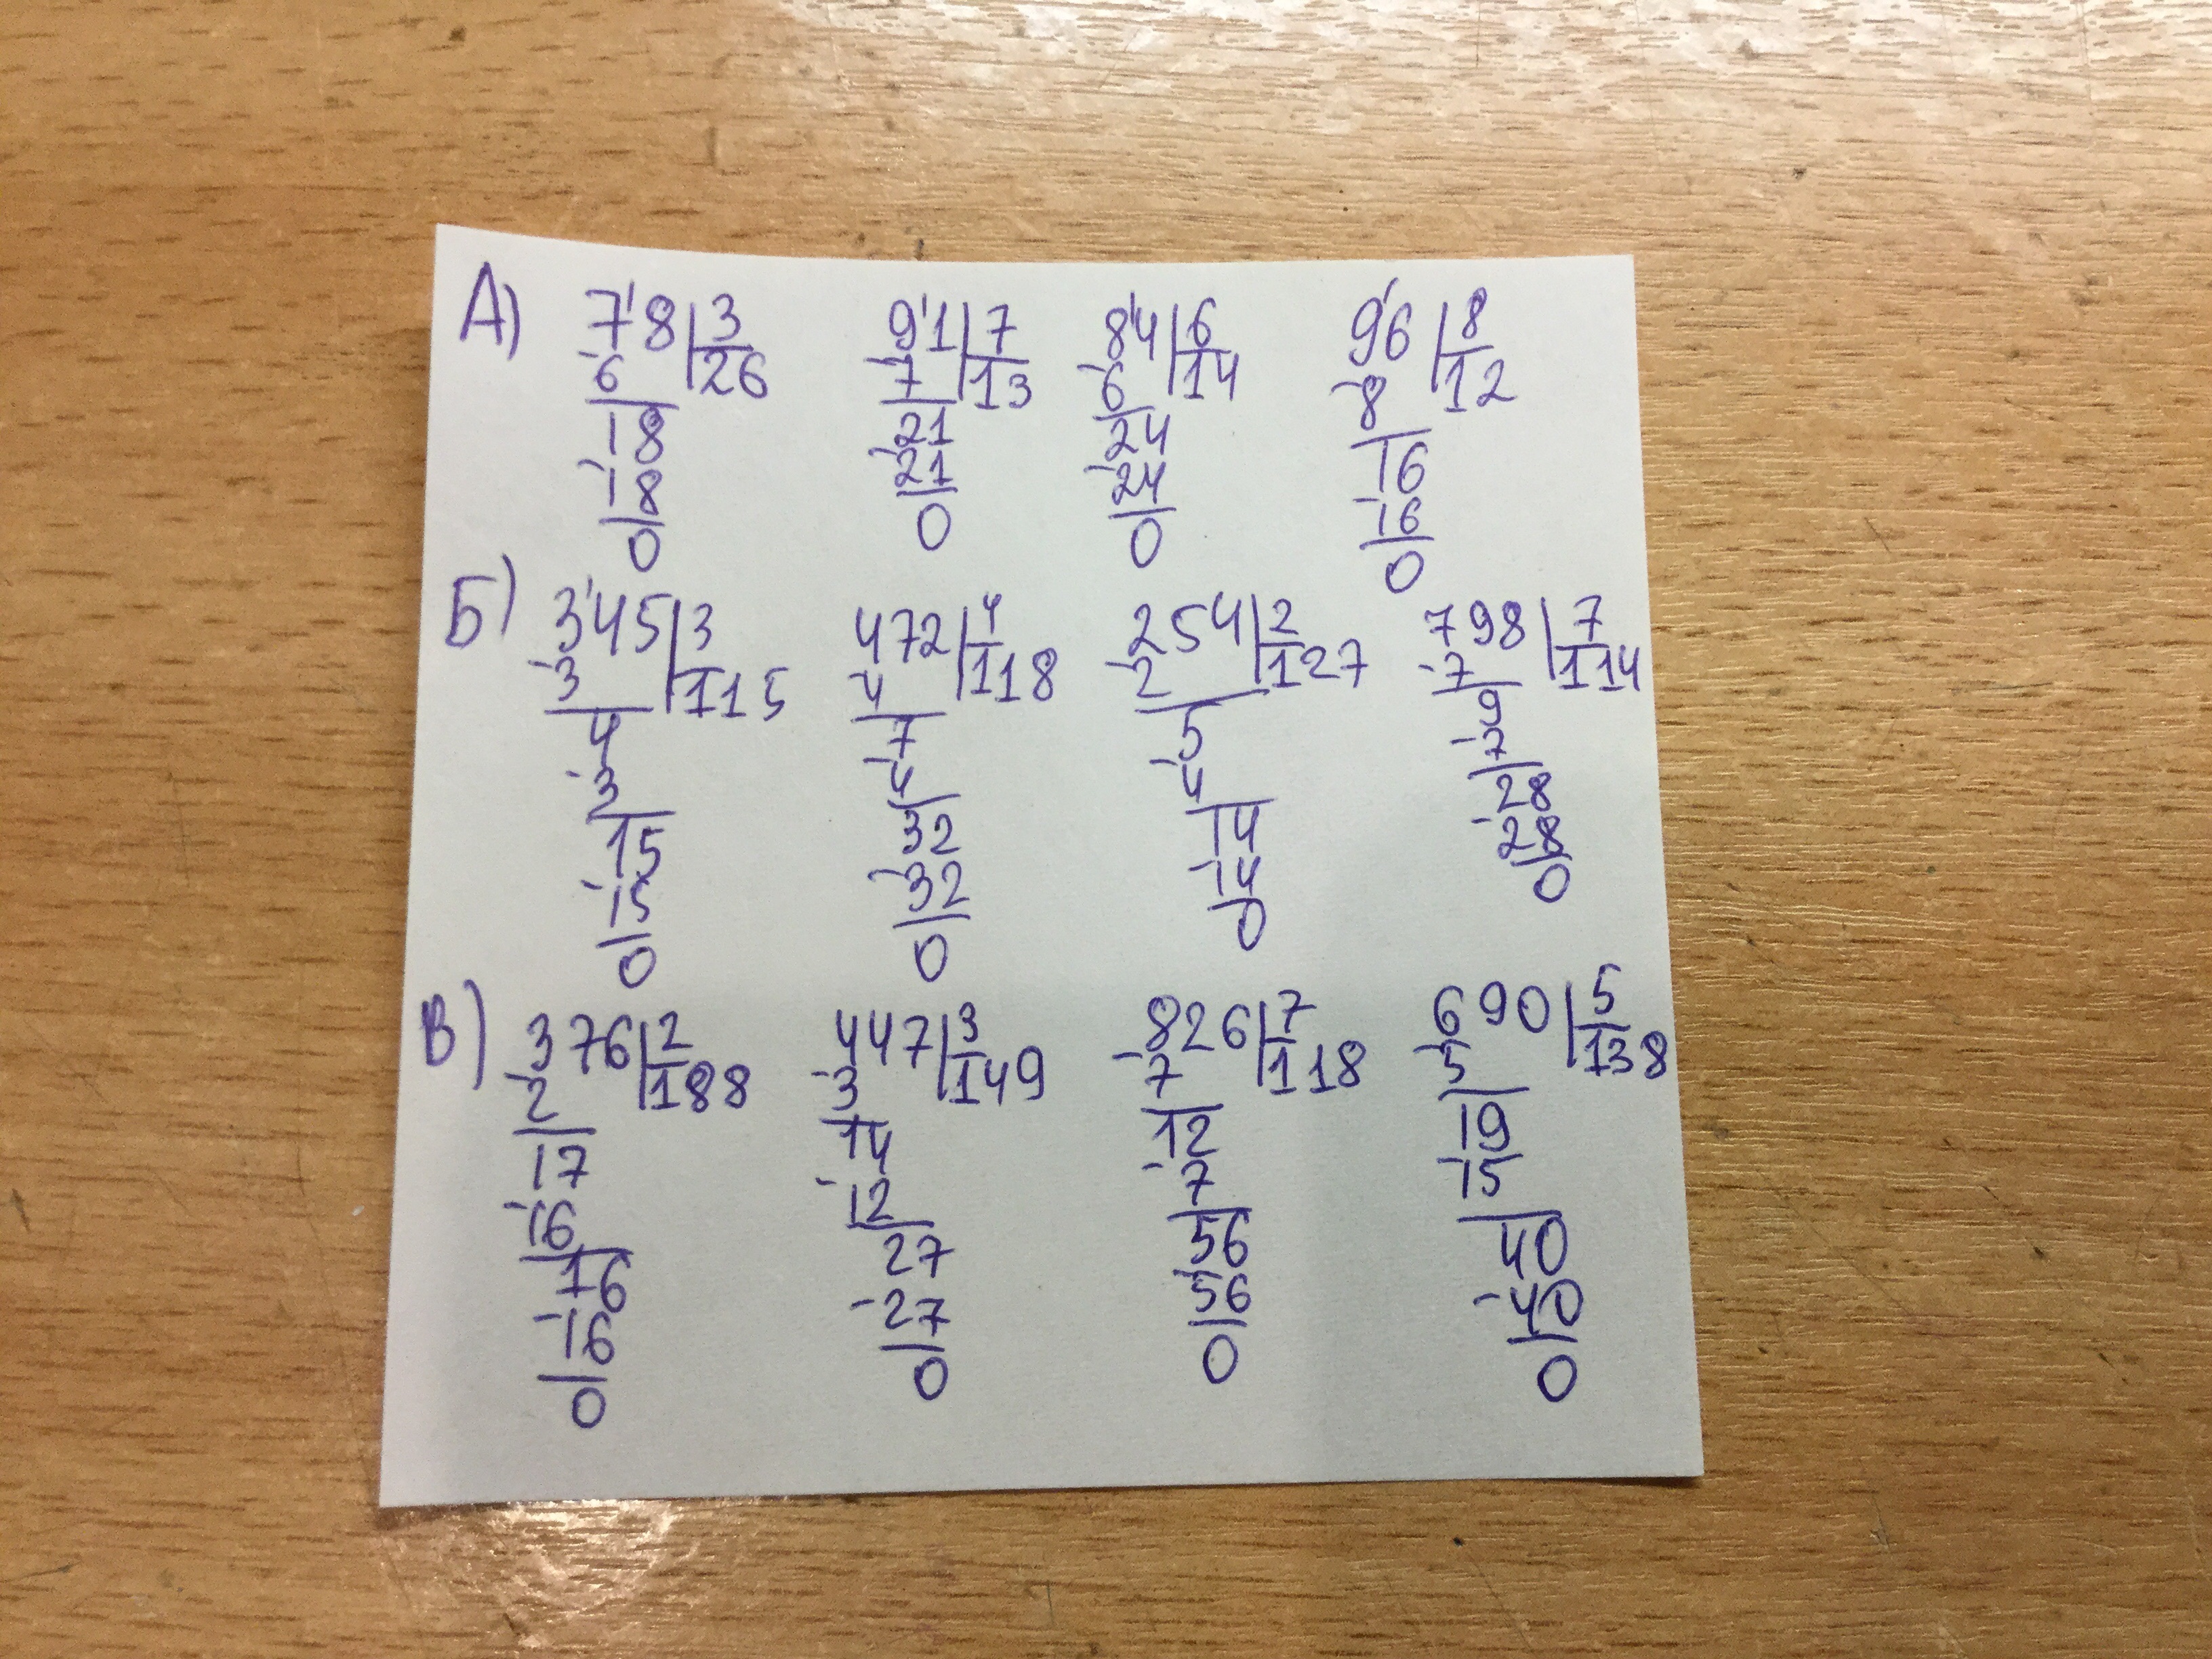 А) 7'8 | 3 9'1 | 7 8'4 | 6 9'6 | 8
-6 | 26 -7 | 13 -6 | 14 -8 | 12
18 21 24 16
-18 -21 -24 -16
0 0 0 0
Б) 3'45 | 3 472 | 4 254 | 2 798 | 7
-3 | 115 -4 | 118 -2 | 127 -7 | 114
4 7 5 9
-3 -4 -4 -7
15 32 14 28
-15 -32 -14 -28
0 0 0 0
В) 376 | 2 447 | 3 826 | 7 690 | 5
-2 | 188 -3 | 149 -7 | 118 -5 | 138
17 14 12 19
-16 -12 -7 -15
16 27 56 40
-16 -27 -56 -40
0 0 0 0